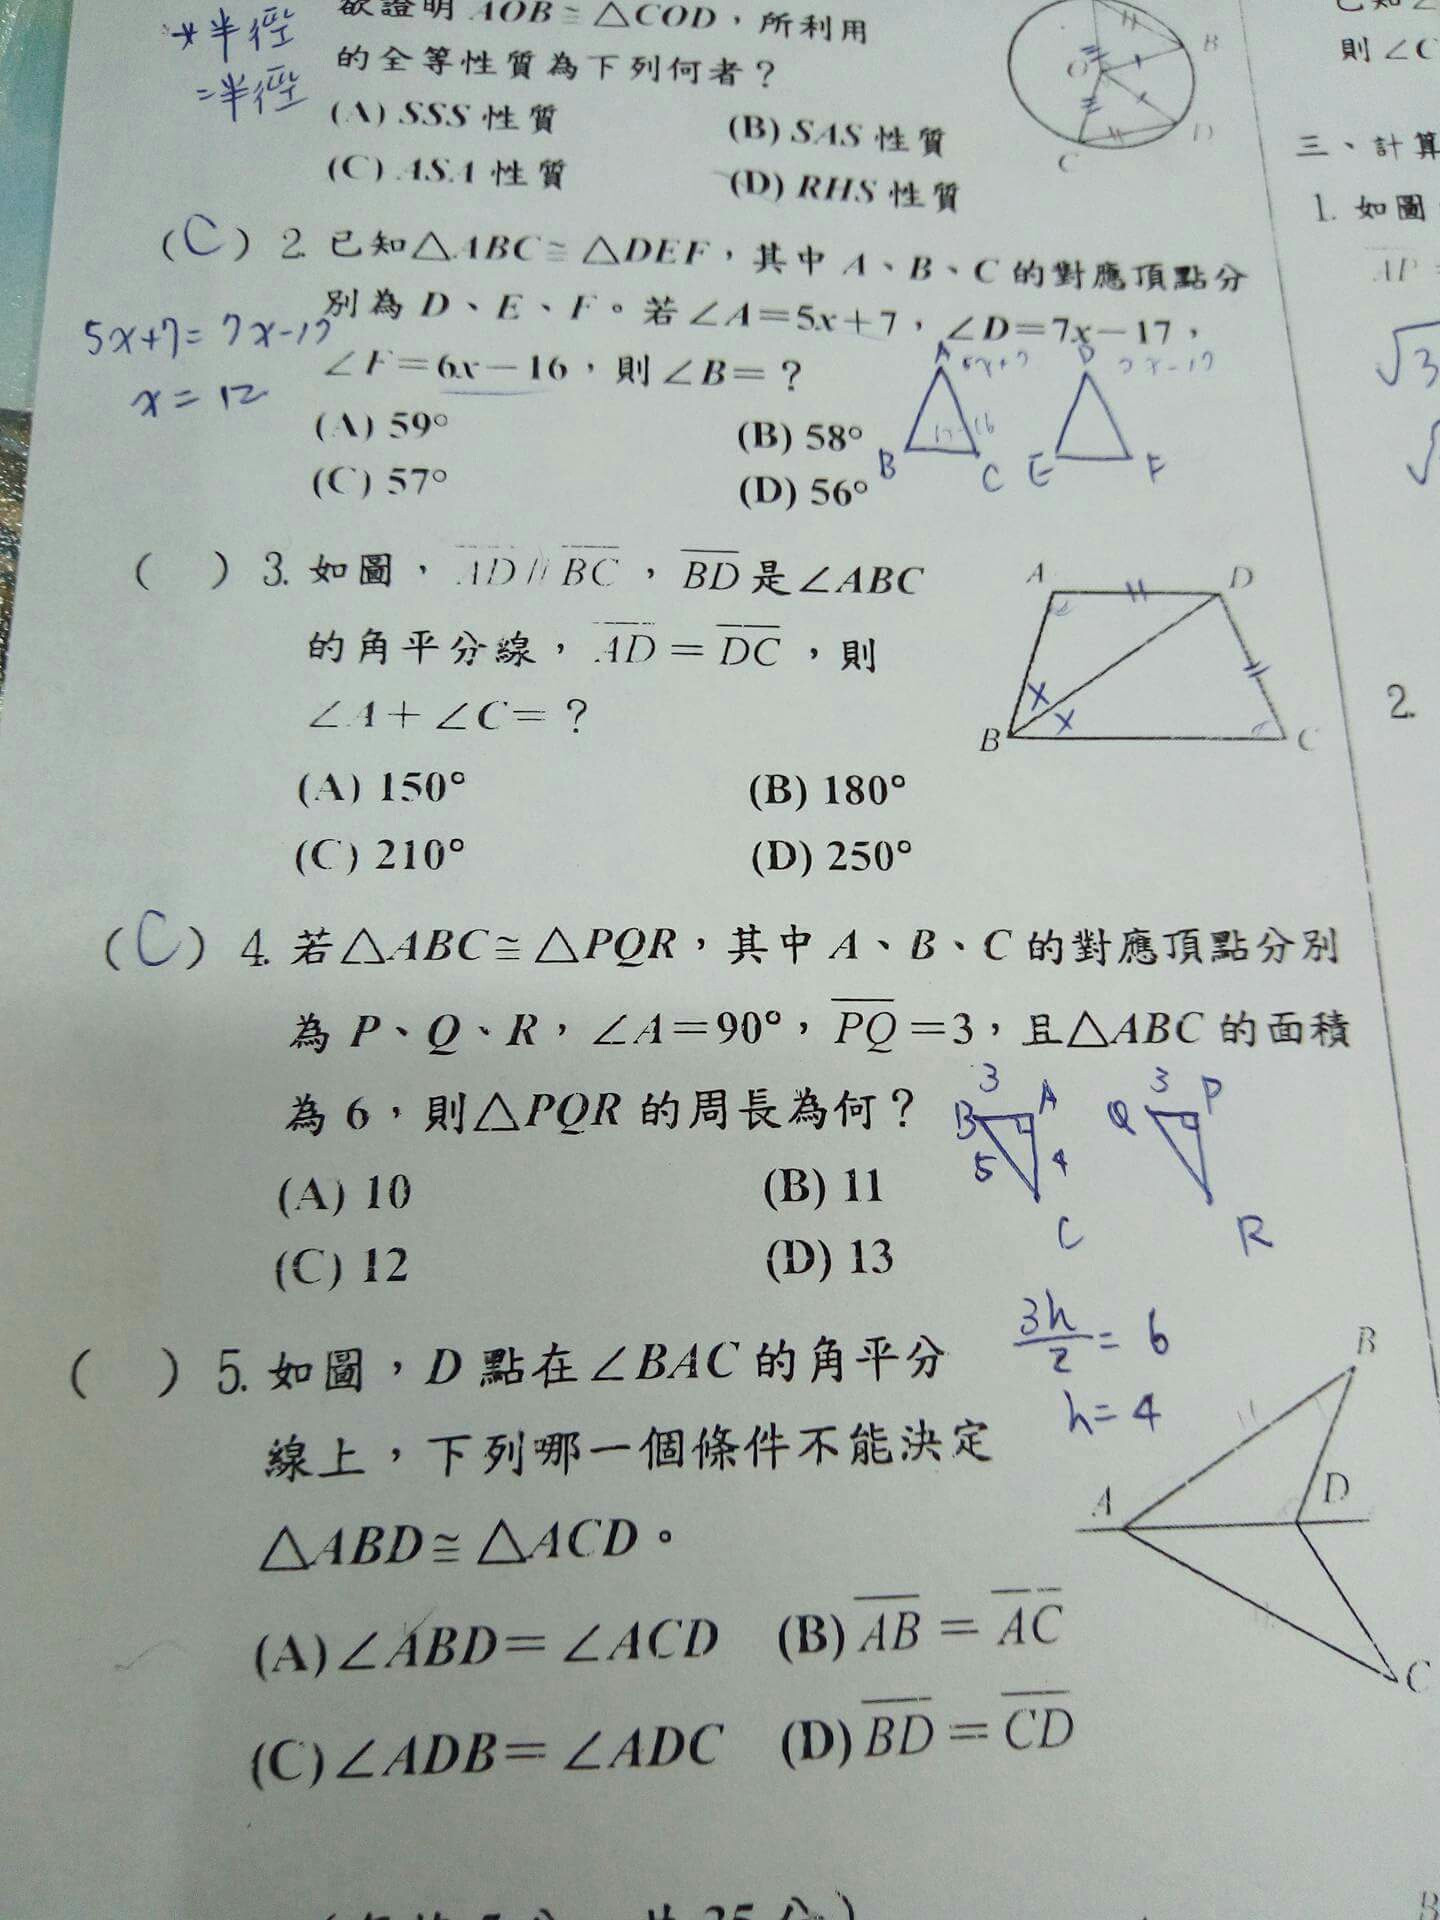 欲證明 AOB≅△COD，所利用
的全等性質為下列何者？
(A) SSS 性質 (B) SAS 性質
(C) ASA 性質 (D) RHS 性質
半徑
=半徑
O B
C D
(C) 2. 已知△ABC≅△DEF，其中 A、B、C 的對應頂點分
別為 D、E、F。若∠A=5x+7，∠D=7x-17，
∠F=6x-16，則∠B=？
(A) 59° (B) 58°
(C) 57° (D) 56°
5x+7=7x-17
x=12
A 5x+7 D 7x-17
B C E F
( ) 3. 如圖，AD // BC，BD是∠ABC
的角平分線，AD = DC，則
∠A+∠C=？
(A) 150° (B) 180°
(C) 210° (D) 250°
A D
x
x
B C
(C) 4. 若△ABC≅△PQR，其中 A、B、C 的對應頂點分別
為 P、Q、R，∠A=90°，PQ=3，且△ABC 的面積
為 6，則△PQR 的周長為何？
(A) 10 (B) 11
(C) 12 (D) 13
3 3
B A Q P
5 4
C R
3h/2 = 6
h=4
( ) 5. 如圖，D 點在∠BAC 的角平分
線上，下列哪一個條件不能決定
△ABD≅△ACD。
(A)∠ABD=∠ACD (B) AB = AC
(C)∠ADB=∠ADC (D) BD = CD
B
A D
C
則∠C
三、計算
1. 如圖
AP =
√3
2.
B